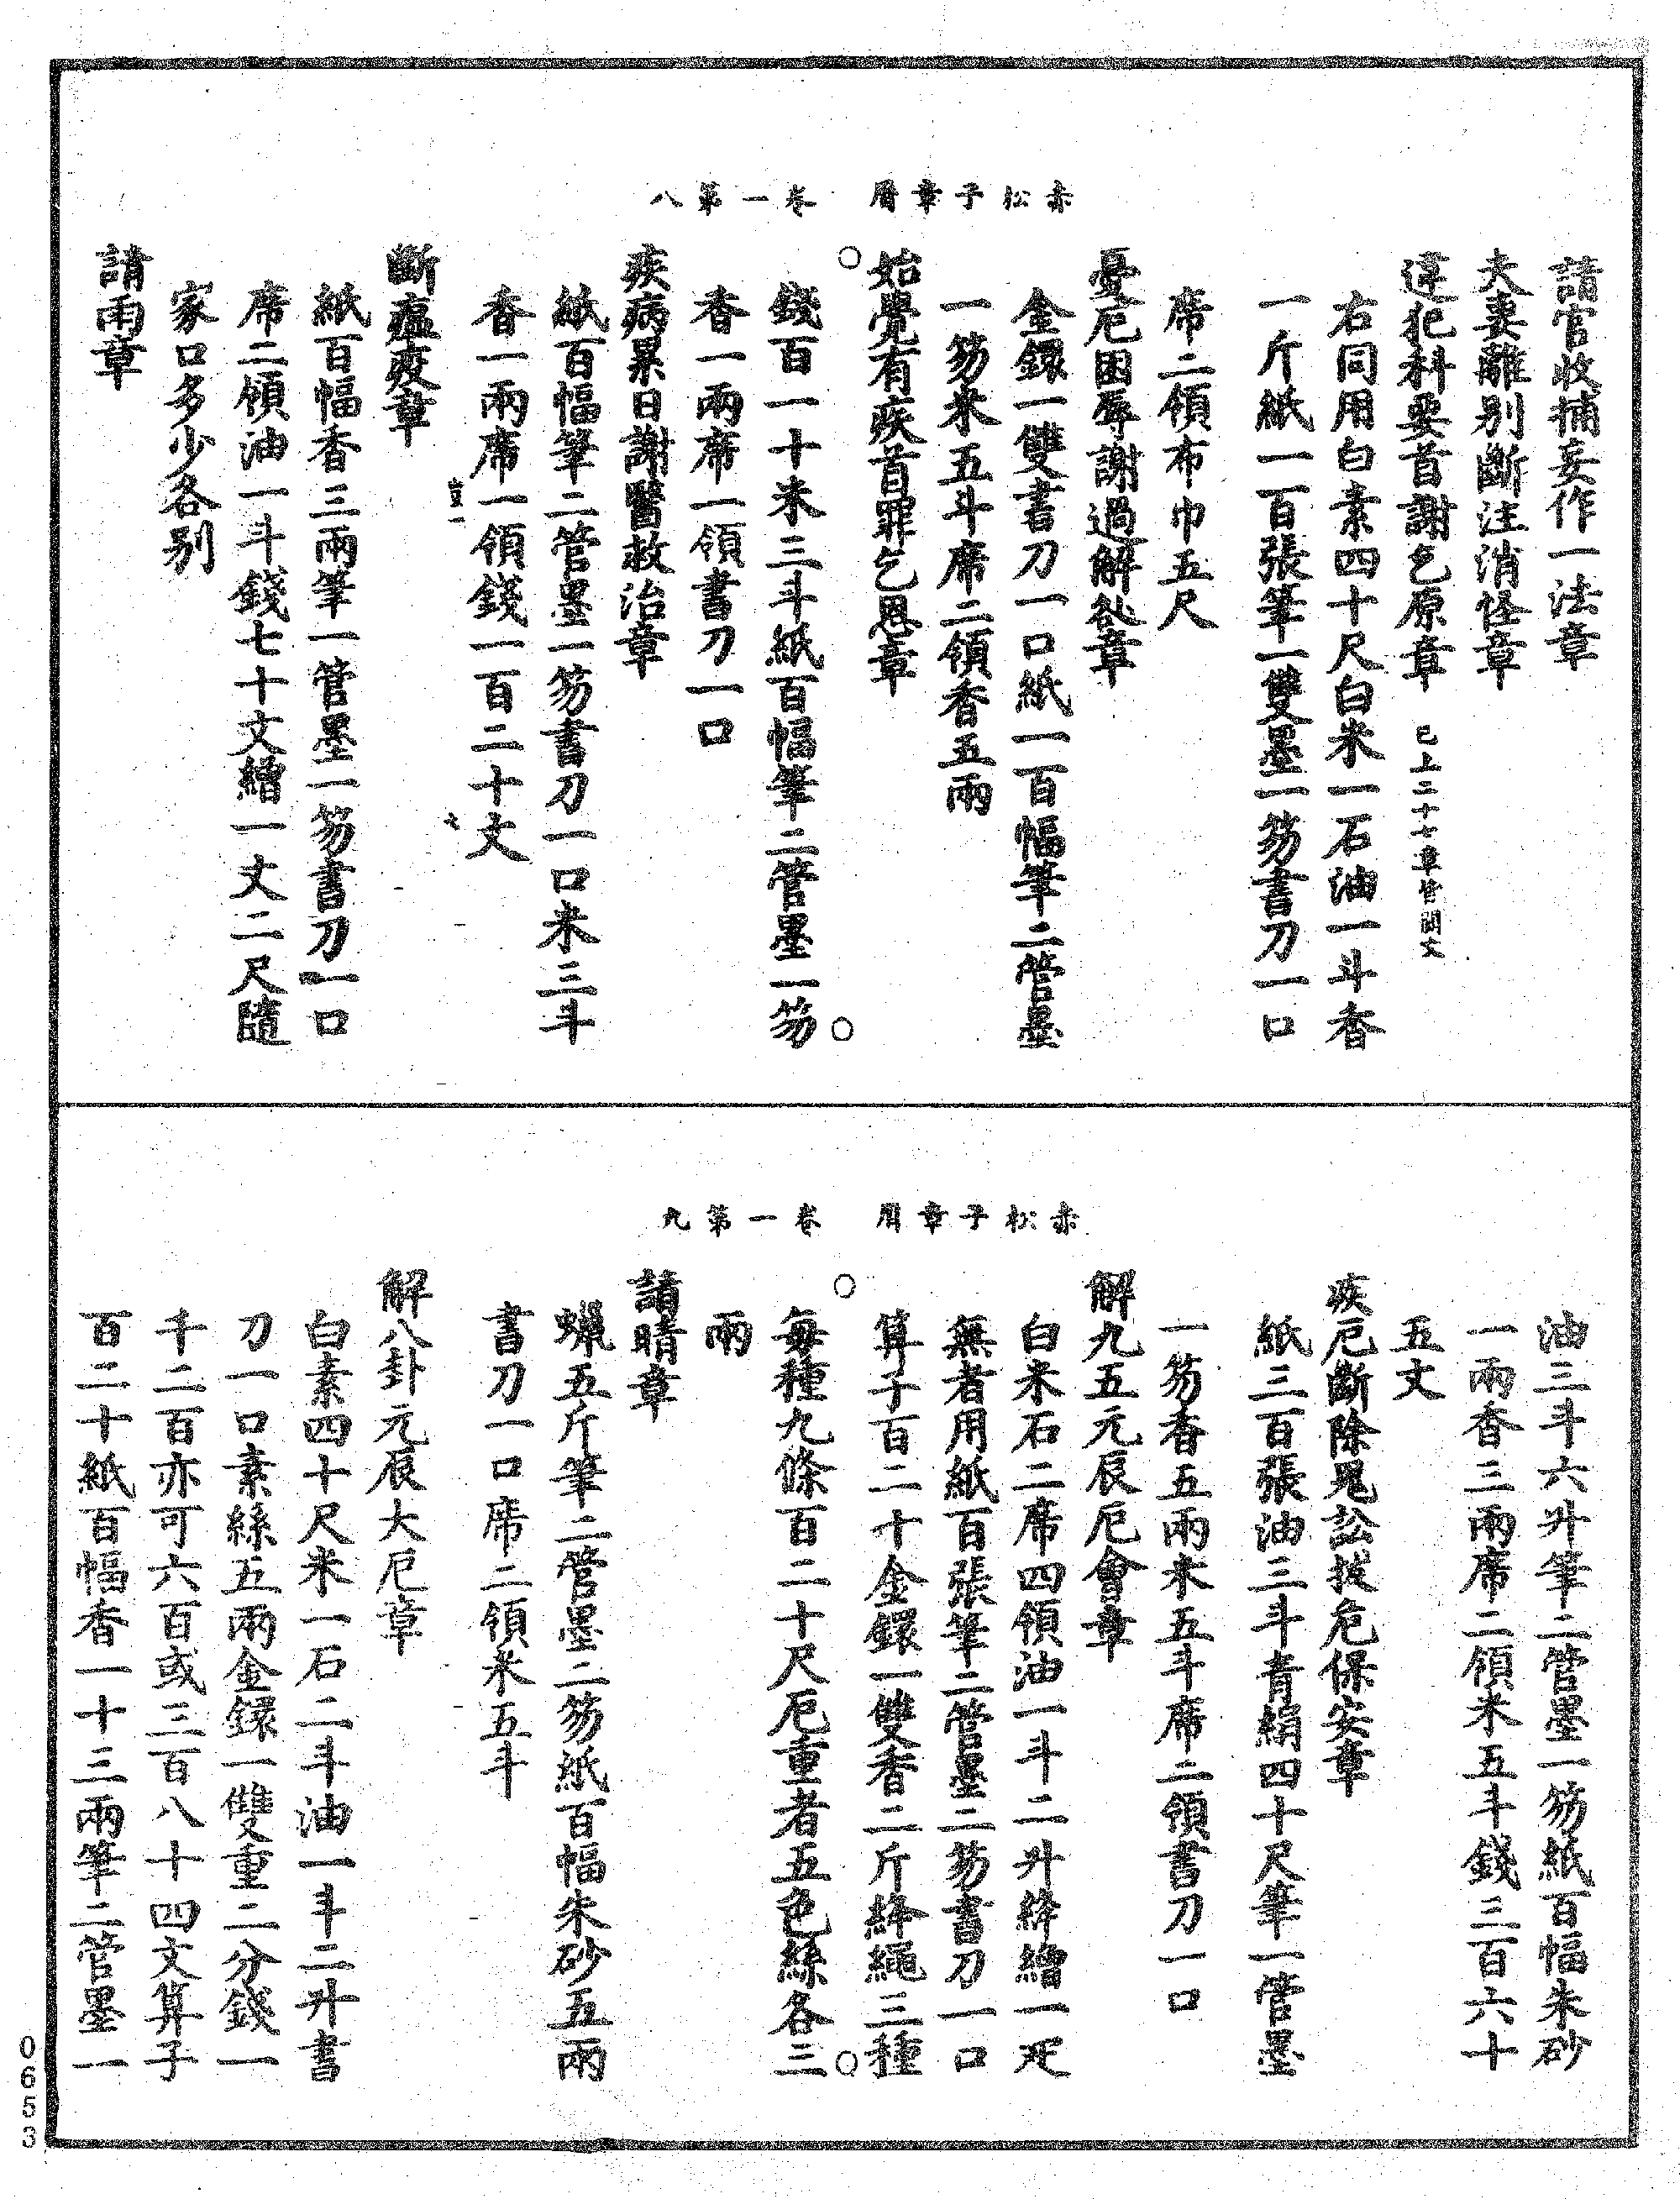 赤松子章曆　卷一第八
請官收捕妄作一法章
夫妻離别斷注消怪章
違犯科要首謝乞原章　已上二十七章皆闕文
右同用白素四十尺白米一石油一斗香
一斤紙一百張筆一雙墨一笏書刀一口
席二領布巾五尺
憂厄困辱謝過解訟章
金鐶一雙書刀一口紙一百幅筆二管墨
一笏米五斗席二領香五兩
始覺有疾首罪乞恩章
錢百一十米三斗紙百幅筆二管墨一笏
香一兩席一領書刀一口
疾病累日謝醫救治章
紙百幅筆二管墨一笏書刀一口米三斗
香一兩席一領錢一百二十文
斷瘟疫章
紙百幅香三兩筆一管墨一笏書刀一口
席二領油一斗錢七十文繒一丈二尺隨
家口多少各别
請雨章
赤松子章曆　卷一第九
油三斗六升筆二管墨一笏紙百幅朱砂
一兩香三兩席二領米五斗錢三百六十
五文
疾厄斷除鬼訟拔危保安章
紙三百張油三斗青絹四十尺筆一管墨
一笏香五兩米五斗席二領書刀一口
解九五元辰厄會章
白米石二席四領油一斗二升絳繒一疋
無者用紙百張筆二管墨二笏書刀一口
算子百二十金鐶一雙香二斤絳繩三種
每種九條百二十尺厄重者五色絲各三
兩
請晴章
蠟五斤筆二管墨二笏紙百幅朱砂五兩
書刀一口席二領米五斗
解八卦元辰大厄章
白素四十尺米一石二斗油一斗二升書
刀一口素絲五兩金鐶一雙重二分錢一
千二百亦可六百或三百八十四文算子
百二十紙百幅香一十三兩筆二管墨一
0653